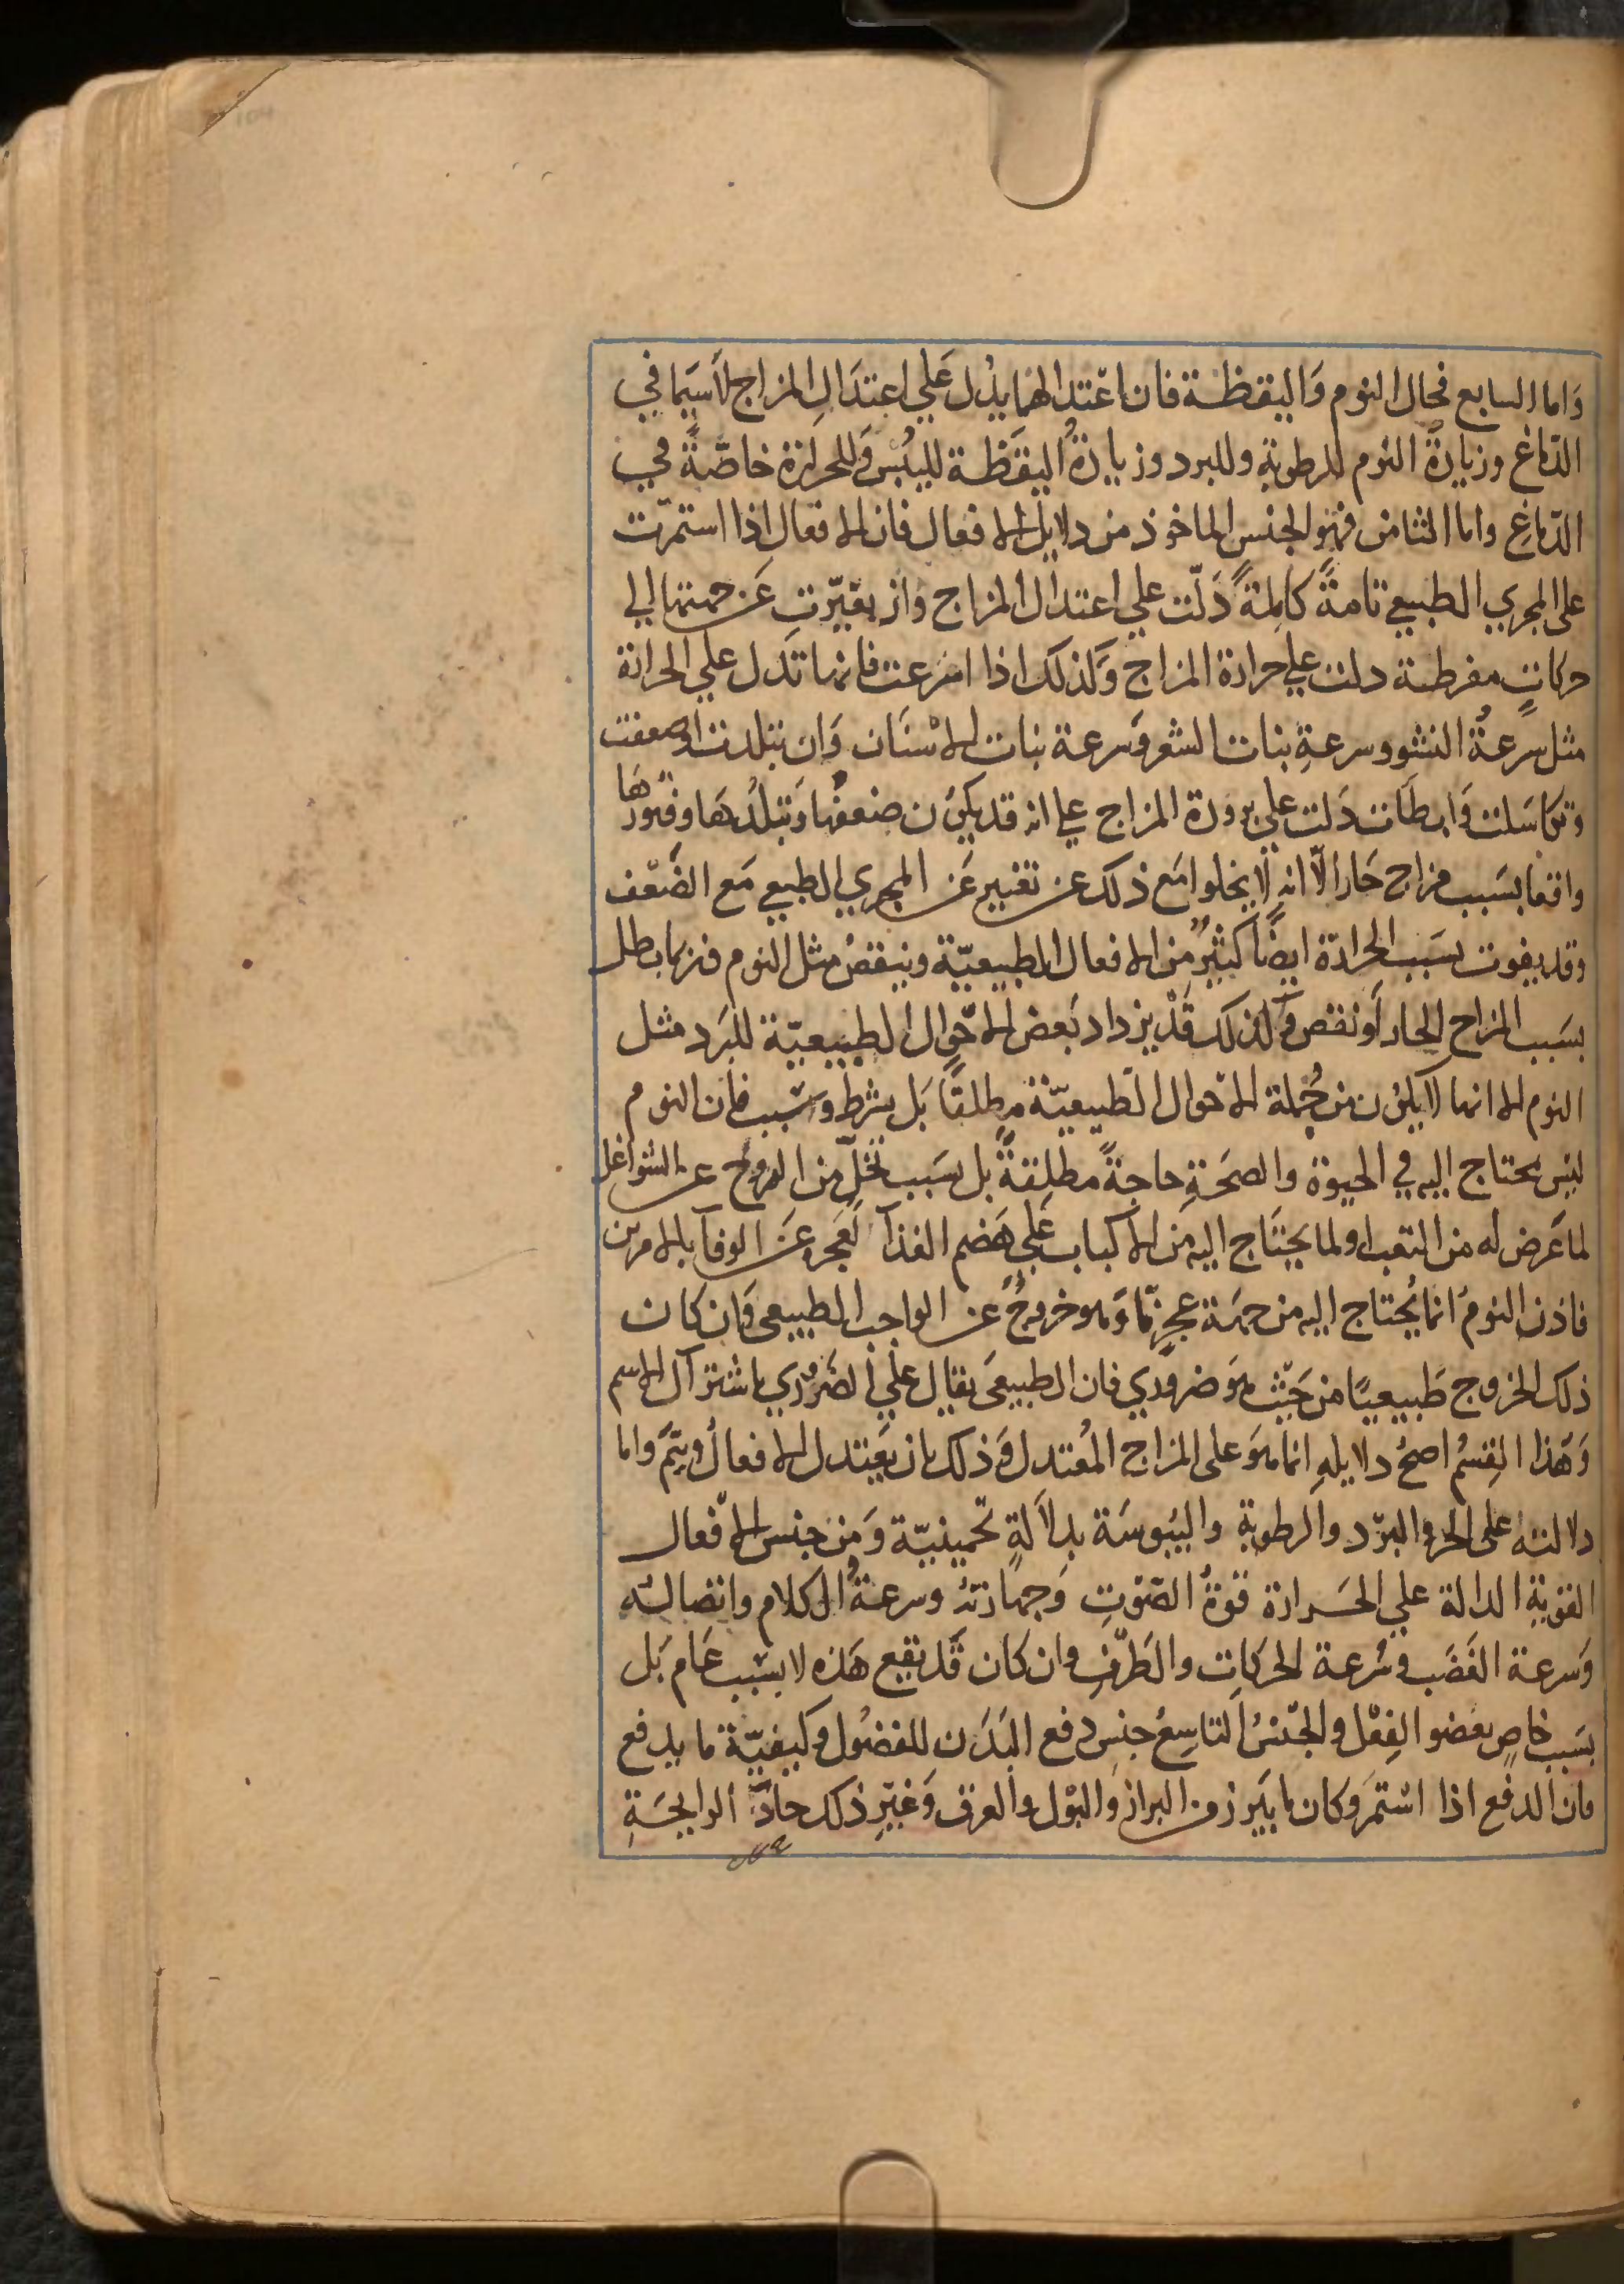 وَاما السابع فحال النوم وَاليقظة فان اعتدالهما يدُل عَلي اعتدَالِ المزاج لاَسيَما في
الدّماغ وزيادَة النوم للرطوبةِ وللبرد وزيادَةُ اليقَظة لليبُس وَللحرارة خاصّةً في
الدّماغِ واما الثامن فهوَ الجنس الماخوذ من دلايل الافعال فان الافعال اذا استمرّت
على المجري الطبيعي تامةً كاملةً دَلّت علي اعتدال المزاج وان تغيّرت عَن جهتها الي
حركاتٍ مفرطة دلت علي حرارة المزاج وَكذلك اذا اسرعت فانها تدل علي الحرارة
مثل سرعةُ النشو وسرعةِ نبات الشعر وَسرعة نبات الاسْنَان وَان تبلدت او ضعفت
وتكاسَلت وَابطات دَلت علي برودة المزاج علي انه قد يكون ضعفها وَتبلُدهَا وفتورهَا
واقعا بسَبب مزاج حَار الّا انه لا يخلوا مَع ذلك عن تغيير عَن المجري الطبيعي مَع الضَعف
وقد يفوت بسَبب الحرارة ايضًا كثيرٌ من الافعال الطبيعيّة وينقصُ مثل النوم فربما بطل
بسَبب المزاج الحار أو نقص وَكذلك قَدْ يزداد بَعض الاحوال الطبيعيّة للبَرد مثل
النوم الا انها لا يكون من جُملة الاحوال الطّبيعيّة مطلقًا بَل بشرط وسَبب فان النوم
ليسَ يحتاج اليه في الحيوة والصحَةِ حاجةً مطلقةً بل بسَبب تخلٍّ من الروح عن الشواغل
لما عَرض له من التعب او لما يحتَاج اليه من الاكباب عَلي هَضم الغذآ لعَجزه عَن الوفآ بالامرين
فاذن النومُ انما يُحتاج اليه من جهَة عجزٍ مّا وَهو خروجٌ عن الواجب الطبيعي وَان كان
ذلك الخروج طَبيعيًا من حَيث هوَ ضروري فان الطبيعَي يقال علي الضَرُوري باشتراك الاسم
وَهَذا القِسمُ اصحُ دلايلهِ انما هوَ على المزاج المُعتدل وَذلك بان يَعتدل الافعالُ ويتمّ واما
دلالته على الحر والبرّد والرطوبة واليبُوسَة بدلاَلةٍ تخمينيّة وَمن جنس الافعال
القويةِ الدالة علي الحَرارة قوةُ الصَوتِ وَجهارَتهُ وسرعةُ الكلام واتصاله
وَسرعة الغَضَب وسُرعة الحركاتِ والطَرْفِ وان كان قَد تقع هَذه لا بسَبب عَام بَل
بسَبب خاصٍ بعَضو الفِعْل والجنسُ التاسِعُ جنس دفع البَدَن للفضُول وكيفيّة ما يدفع
فان الدفع اذا استمرَ وكان ما يبَرز من البراز والبَوْل والعرق وَغيْرِ ذلك حادَّ الرايحَةِ